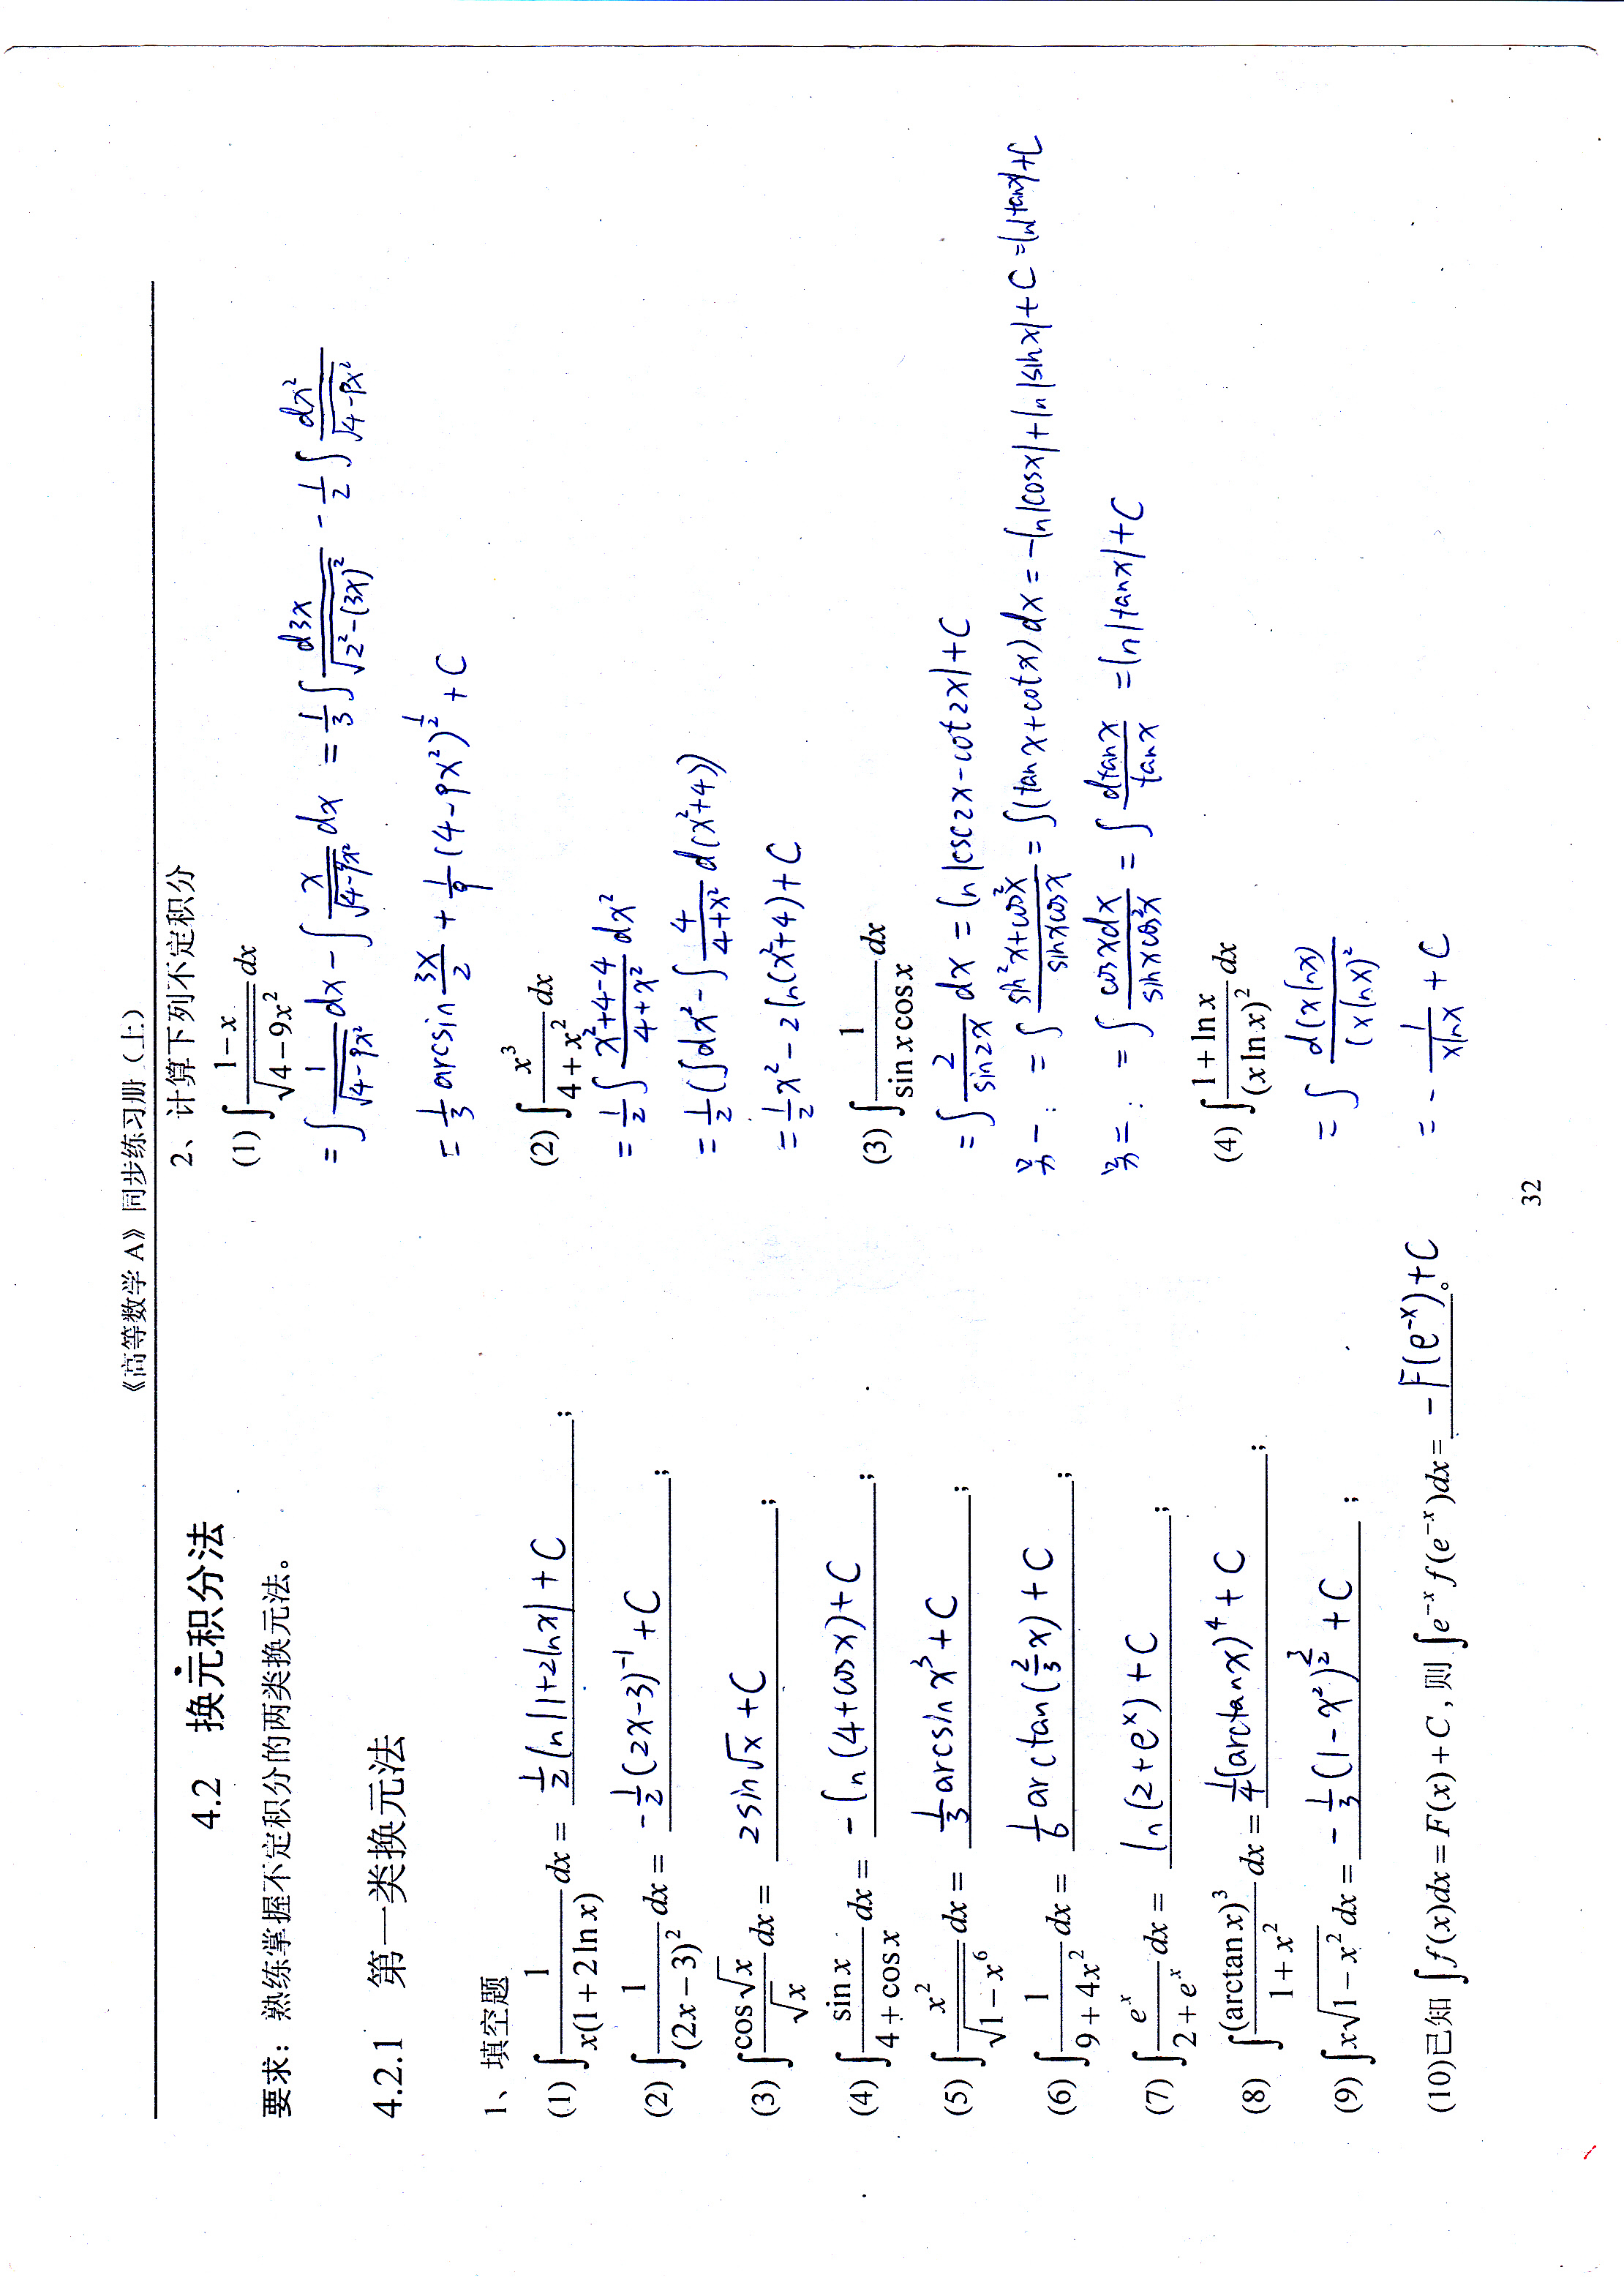 《高等数学 A》同步练习册（上）
4.2 换元积分法
要求：熟练掌握不定积分的两类换元法。
4.2.1 第一类换元法
1、填空题
(1) ∫ 1/(x(1+2ln x)) dx = ½ ln|1+2lnx| + C ;
(2) ∫ 1/(2x−3)² dx = −½(2x−3)⁻¹ + C ;
(3) ∫ cos√x/√x dx = 2sin√x + C ;
(4) ∫ sin x/(4+cos x) dx = −ln(4+cosx)+C ;
(5) ∫ x²/√(1−x⁶) dx = ⅓ arcsin x³ + C ;
(6) ∫ 1/(9+4x²) dx = ⅙ arctan(⅔x) + C ;
(7) ∫ eˣ/(2+eˣ) dx = ln(2+eˣ) + C ;
(8) ∫ (arctan x)³/(1+x²) dx = ¼(arctanx)⁴ + C ;
(9) ∫ x√(1−x²) dx = −⅓(1−x²)^(3/2) + C ;
(10)已知 ∫ f(x)dx = F(x)+C , 则 ∫ e⁻ˣ f(e⁻ˣ)dx = −F(e⁻ˣ)+C 。
2、计算下列不定积分
(1) ∫ (1−x)/√(4−9x²) dx
= ∫ 1/√(4−9x²) dx − ∫ x/√(4−9x²) dx = ⅓ ∫ d3x/√(2²−(3x)²) − ½ ∫ dx²/√(4−9x²)
= ⅓ arcsin 3x/2 + 1/9 (4−9x²)^(1/2) + C
(2) ∫ x³/(4+x²) dx
= ½ ∫ (x²+4−4)/(4+x²) dx²
= ½ (∫dx² − ∫ 4/(4+x²) d(x²+4))
= ½x² − 2ln(x²+4) + C
(3) ∫ 1/(sin x cos x) dx
= ∫ 2/sin2x dx = ln|csc2x−cot2x|+C
另一: = ∫ (sin²x+cos²x)/(sinxcosx) = ∫(tanx+cotx)dx = −ln|cosx|+ln|sinx|+C =ln|tanx|+C
另二: = ∫ cosxdx/(sinxcos²x) = ∫ dtanx/tanx = ln|tanx|+C
(4) ∫ (1+ln x)/(x ln x)² dx
= ∫ d(xlnx)/(xlnx)²
= − 1/(xlnx) + C
32